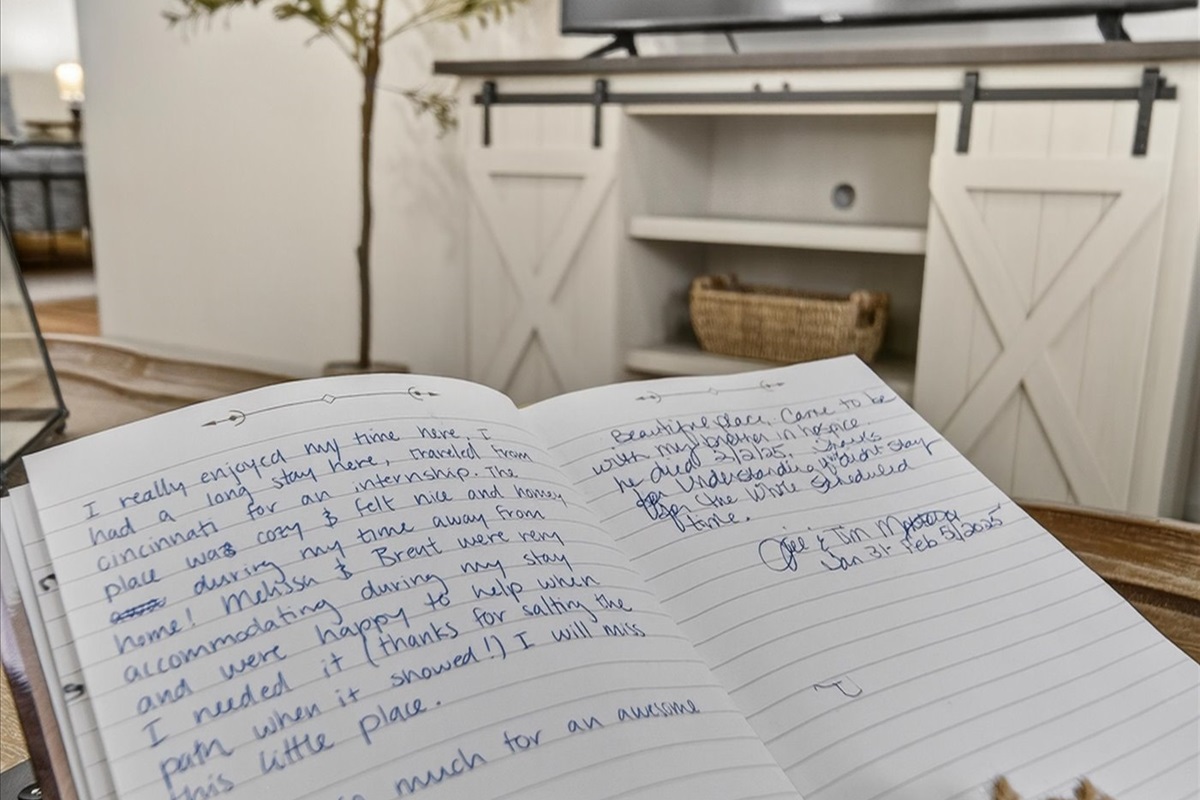 I really enjoyed my time here, I
had a long stay here, traveled from
cincinnati for an internship. The
place was cozy & felt nice and homey
during my time away from
home! Melissa & Brent were very
accommodating during my stay
and were happy to help when
I needed it (thanks for salting the
path when it showed!) I will miss
this little place.
much for an awesome
Beautiful place. Came to be
with my brother in hospice.
he died 2/2/25. Thanks
for understanding we didn't stay
for the whole scheduled
time.
& Jim
Jan 31- Feb 5/2025